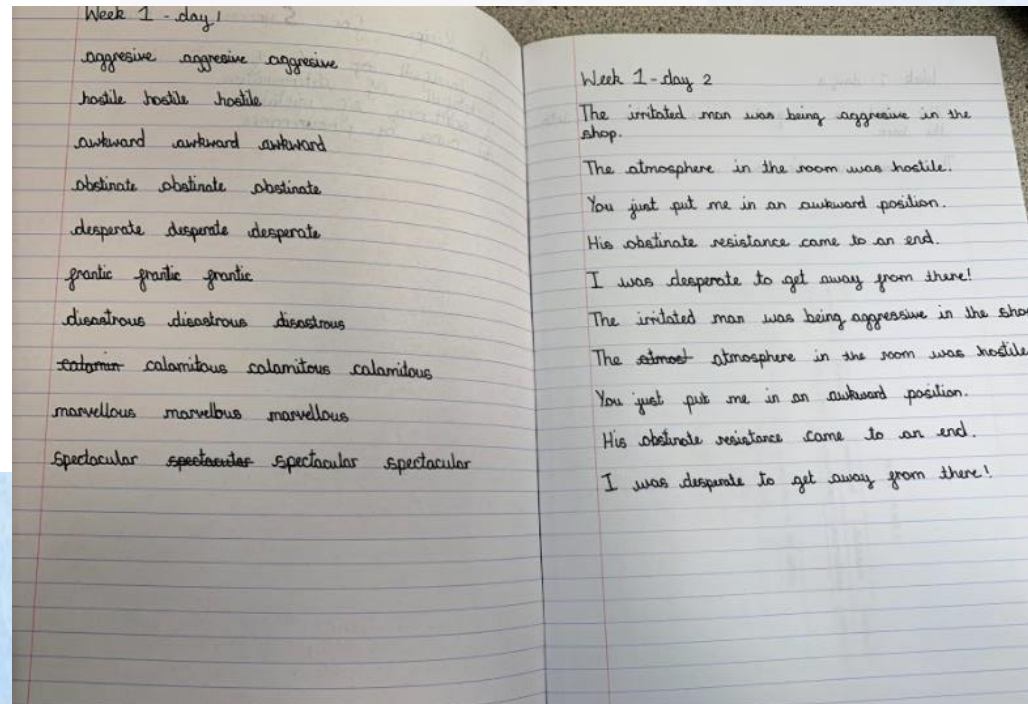 Week 1 - day 1
aggresive aggresive aggresive
hostile hostile hostile
awkward awkward awkward
obstinate obstinate obstinate
desperate desperate desperate
frantic frantic frantic
disastrous disastrous disastrous
calamin calamitous calamitous calamitous
marvellous marvellous marvellous
spectacular spectacular spectacular spectacular
Week 1 - day 2
The irritated man was being aggresive in the
shop.
The atmosphere in the room was hostile.
You just put me in an awkward position.
His obstinate resistance came to an end.
I was desperate to get away from there!
The irritated man was being aggressive in the sho
The atmost atmosphere in the room was hostile
You just put me in an awkward position.
His obstinate resistance came to an end.
I was desperate to get away from there!